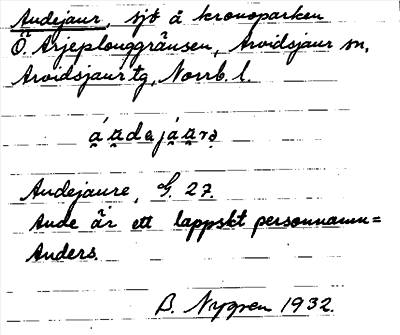 Audejaur, sjö å kronoparken
Ö. Arjeplouggränsen, Arvidsjaur sn,
Arvidsjaur tg, Norrb. l.
á̯a̯dejá̯a̯rə
Audejaure, G. 27.
Aude är ett lappskt personnamn=
Anders.
B. Nygren 1932.